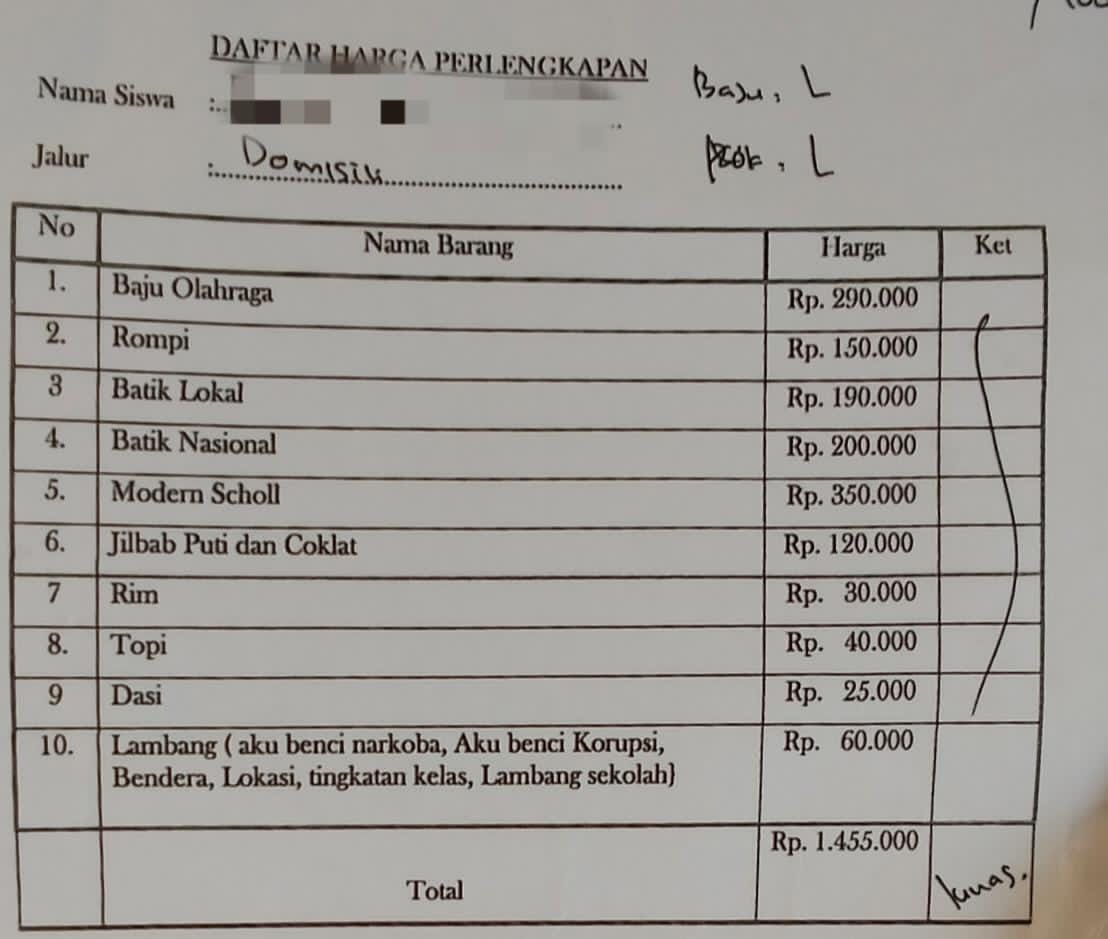 DAFTAR HARGA PERLENGKAPAN
Nama Siswa :..
Baju, L
Jalur : Domisili
, L
No Nama Barang Harga Ket
1. Baju Olahraga Rp. 290.000
2. Rompi Rp. 150.000
3 Batik Lokal Rp. 190.000
4. Batik Nasional Rp. 200.000
5. Modern Scholl Rp. 350.000
6. Jilbab Puti dan Coklat Rp. 120.000
7 Rim Rp. 30.000
8. Topi Rp. 40.000
9 Dasi Rp. 25.000
10. Lambang ( aku benci narkoba, Aku benci Korupsi, Rp. 60.000
Bendera, Lokasi, tingkatan kelas, Lambang sekolah}
Rp. 1.455.000
Total lunas.